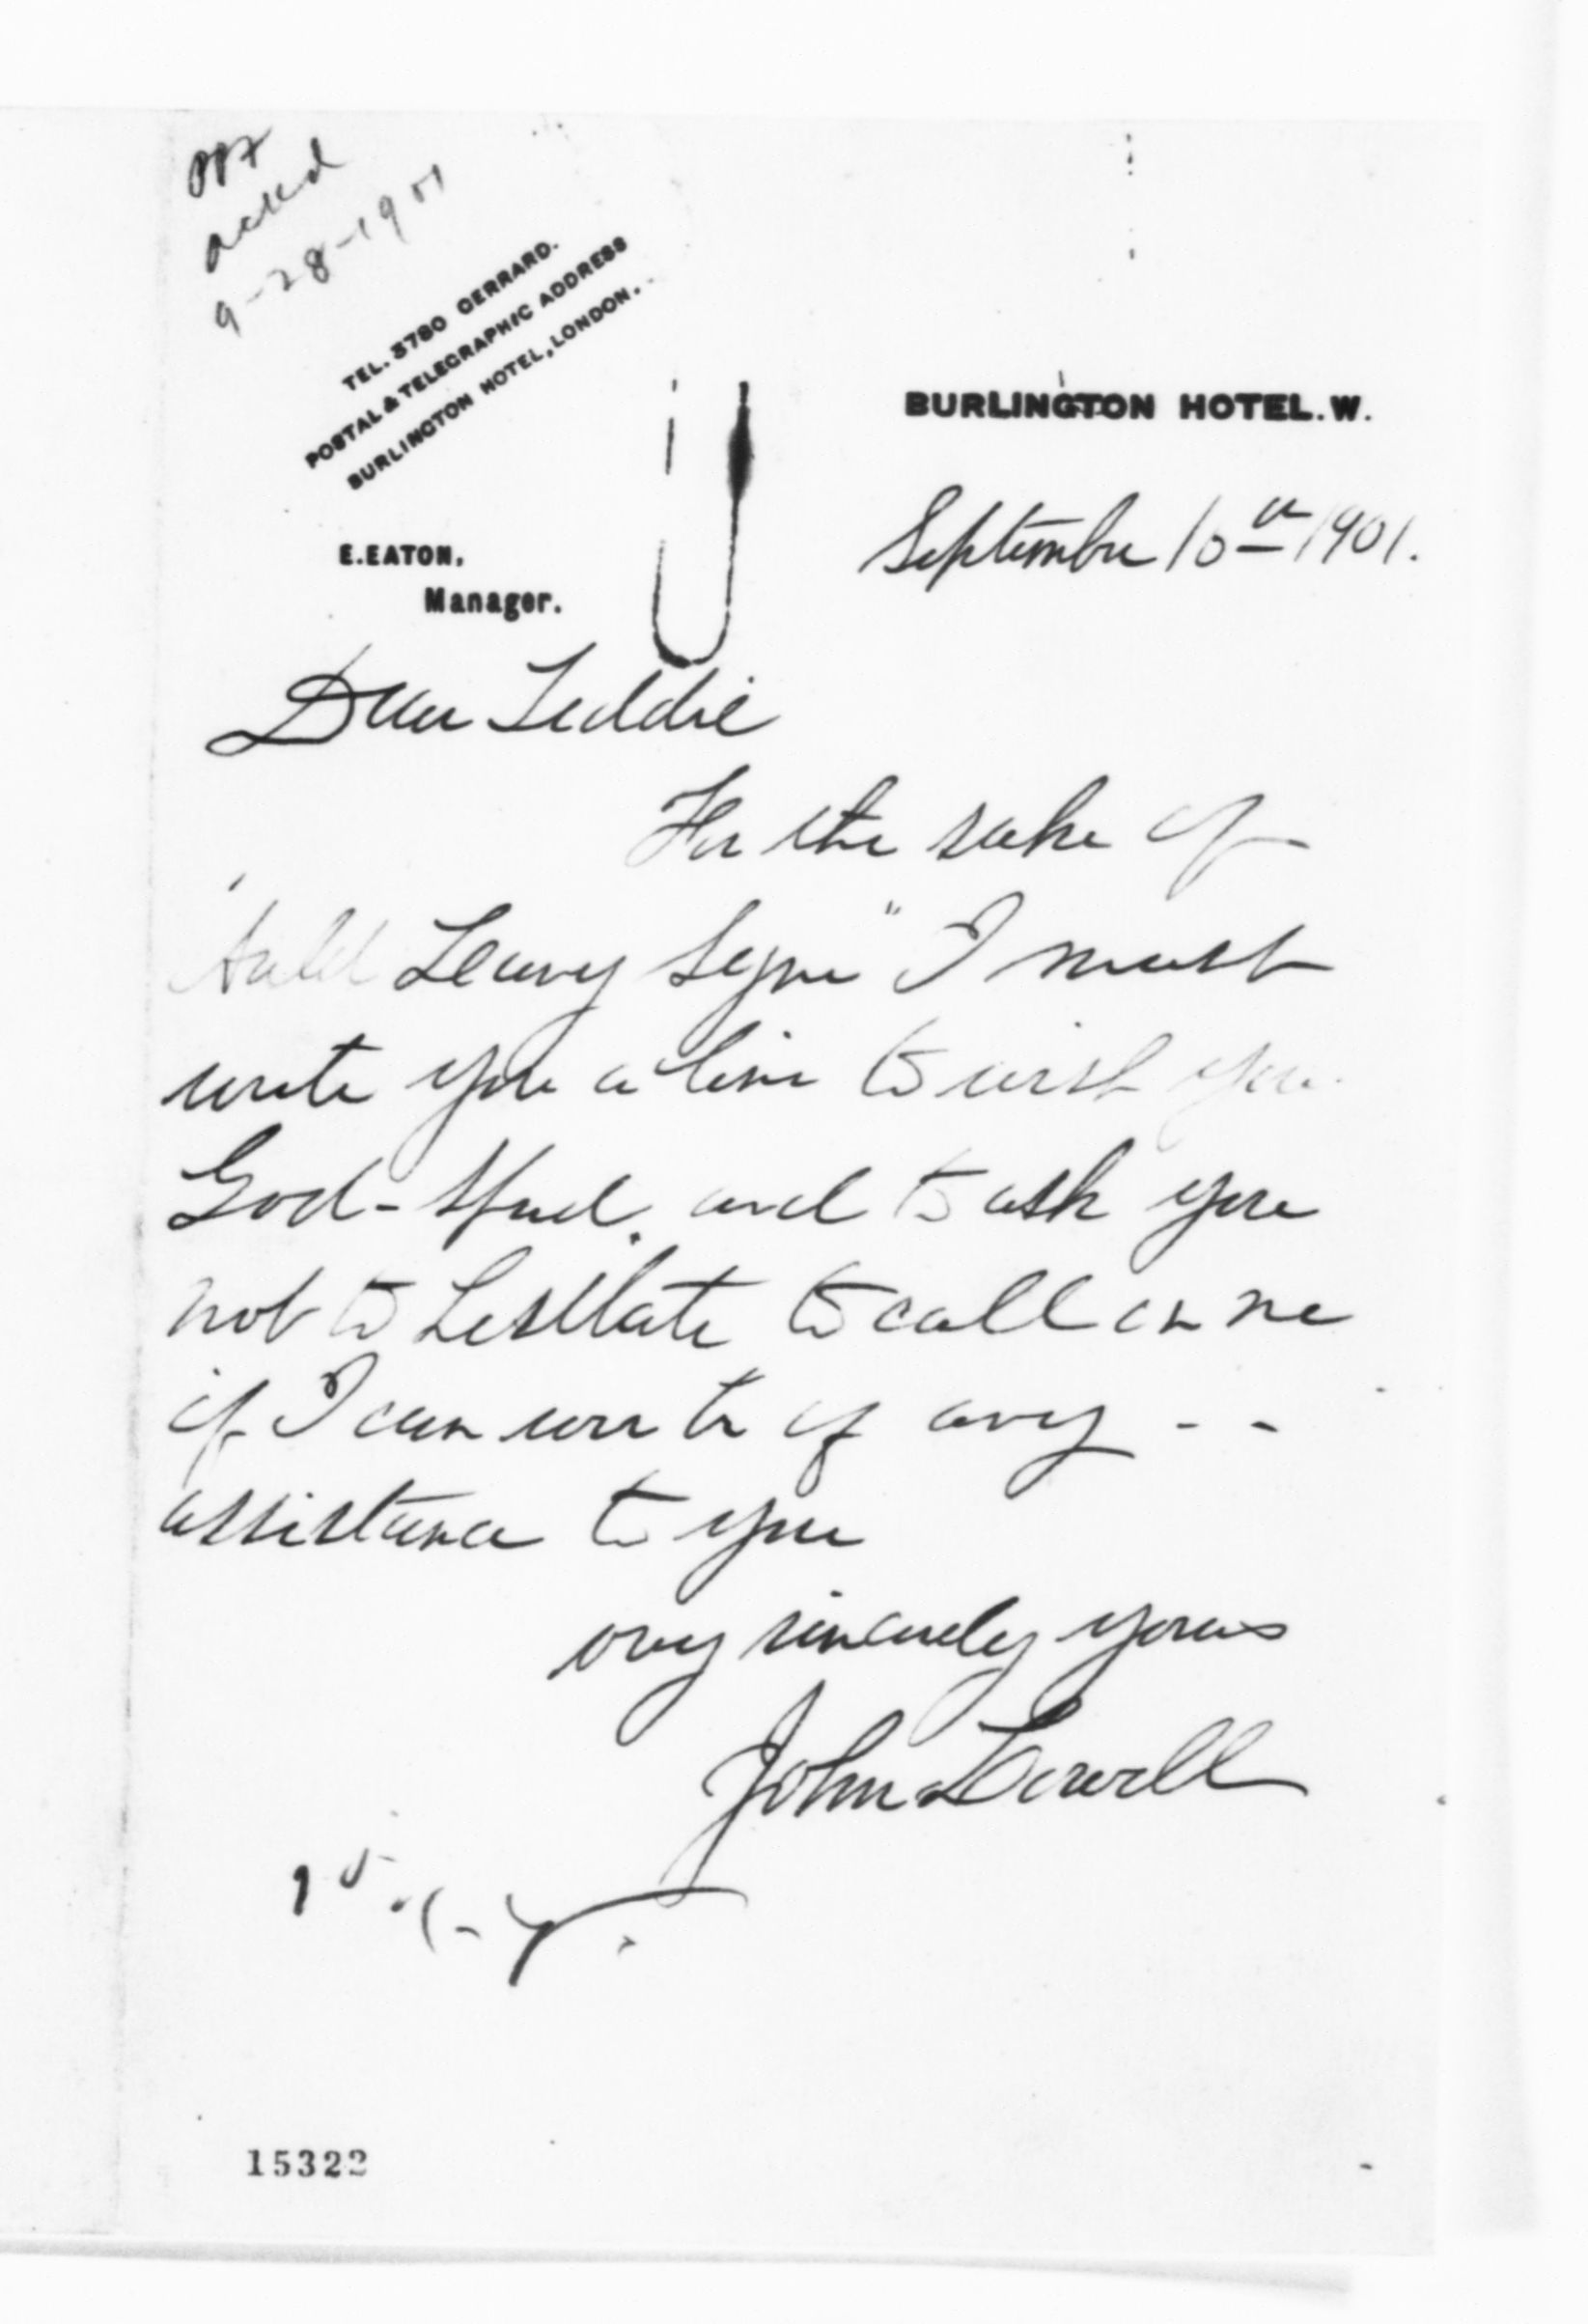 PPF
ackd
9-28-1901
TEL. 3780 GERRARD.
POSTAL & TELEGRAPHIC ADDRESS
BURLINGTON HOTEL, LONDON.
E. EATON,
Manager.
BURLINGTON HOTEL. W.
September 16th 1901.
Dear Teddie
For the sake of
"Auld Lang Syne" I must
write you a line to wish you
God-speed, and to ask you
not to hesitate to call on me
if I can ever be of any - -
assistance to you
very sincerely yours
John Lowell
15322